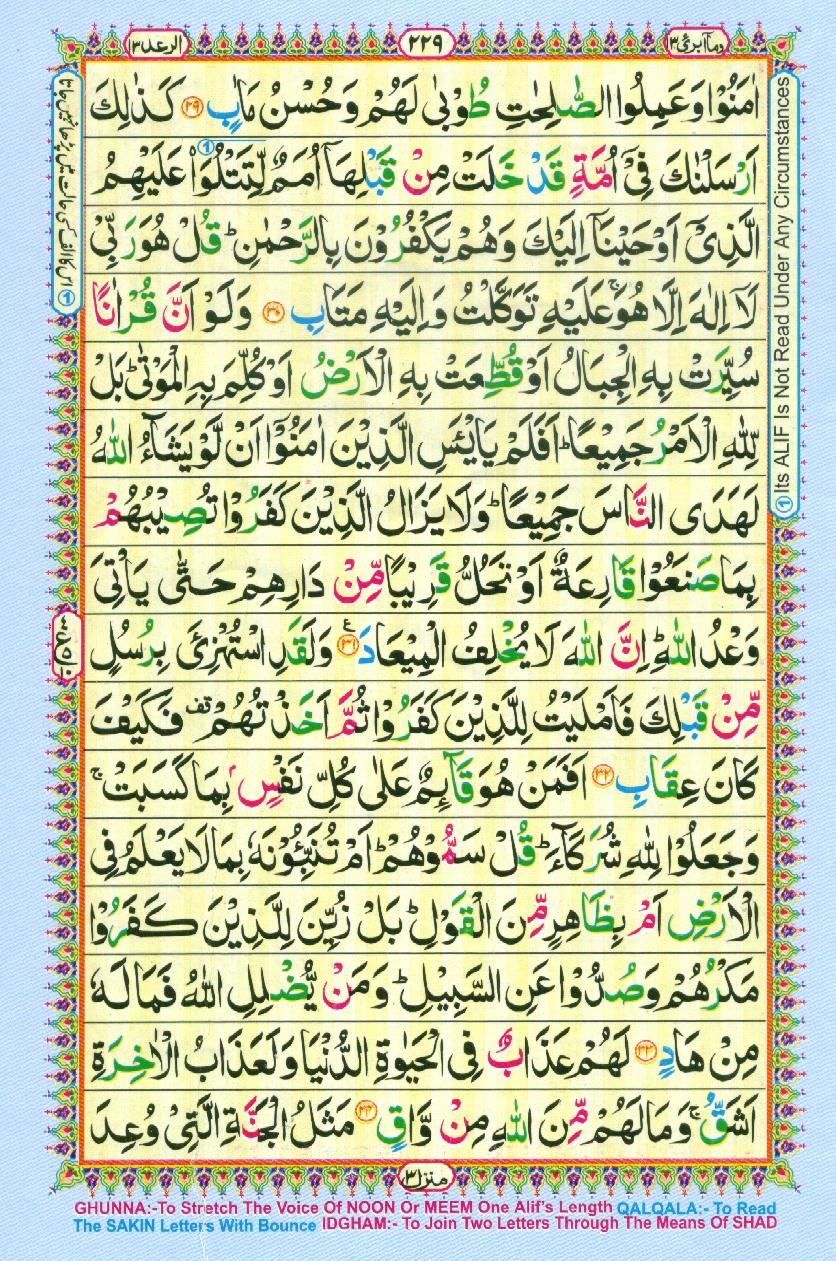 وما ابرئ ١٣
٢٢٩
الرعد ١٣
اٰمَنُوْا وَعَمِلُوا الصّٰلِحٰتِ طُوْبٰى لَهُمْ وَحُسْنُ مَاٰبٍ ﴿۲۹﴾ كَذٰلِكَ
اَرْسَلْنٰكَ فِىْۤ اُمَّةٍ قَدْ خَلَتْ مِنْ قَبْلِهَاۤ اُمَمٌ لِّتَتْلُوَا۟ ① عَلَيْهِمُ
الَّذِىْۤ اَوْحَيْنَاۤ اِلَيْكَ وَهُمْ يَكْفُرُوْنَ بِالرَّحْمٰنِ ؕ قُلْ هُوَ رَبِّىْ
لَاۤ اِلٰهَ اِلَّا هُوَ ۚ عَلَيْهِ تَوَكَّلْتُ وَاِلَيْهِ مَتَابِ ﴿۳۰﴾ وَلَوْ اَنَّ قُرْاٰنًا
سُيِّرَتْ بِهِ الْجِبَالُ اَوْ قُطِّعَتْ بِهِ الْاَرْضُ اَوْ كُلِّمَ بِهِ الْمَوْتٰى ؕ بَلْ
لِّلّٰهِ الْاَمْرُ جَمِيْعًا ؕ اَفَلَمْ يَايْـَٔسِ الَّذِيْنَ اٰمَنُوْۤا اَنْ لَّوْ يَشَآءُ اللّٰهُ
لَهَدَى النَّاسَ جَمِيْعًا ؕ وَلَا يَزَالُ الَّذِيْنَ كَفَرُوْا تُصِيْبُهُمْ
بِمَا صَنَعُوْا قَارِعَةٌ اَوْ تَحُلُّ قَرِيْبًا مِّنْ دَارِهِمْ حَتّٰى يَاْتِىَ
وَعْدُ اللّٰهِ ؕ اِنَّ اللّٰهَ لَا يُخْلِفُ الْمِيْعَادَ ﴿۳۱﴾ ع وَلَقَدِ اسْتُهْزِئَ بِرُسُلٍ
مِّنْ قَبْلِكَ فَاَمْلَيْتُ لِلَّذِيْنَ كَفَرُوْا ثُمَّ اَخَذْتُهُمْ قف فَكَيْفَ
كَانَ عِقَابِ ﴿۳۲﴾ اَفَمَنْ هُوَ قَآئِمٌ عَلٰى كُلِّ نَفْسٍۭ بِمَا كَسَبَتْ ۚ
وَجَعَلُوْا لِلّٰهِ شُرَكَآءَ ؕ قُلْ سَمُّوْهُمْ ؕ اَمْ تُنَبِّـُٔوْنَهٗ بِمَا لَا يَعْلَمُ فِى
الْاَرْضِ اَمْ بِظَاهِرٍ مِّنَ الْقَوْلِ ؕ بَلْ زُيِّنَ لِلَّذِيْنَ كَفَرُوْا
مَكْرُهُمْ وَصُدُّوْا عَنِ السَّبِيْلِ ؕ وَمَنْ يُّضْلِلِ اللّٰهُ فَمَا لَهٗ
مِنْ هَادٍ ﴿۳۳﴾ لَهُمْ عَذَابٌ فِى الْحَيٰوةِ الدُّنْيَا وَلَعَذَابُ الْاٰخِرَةِ
اَشَقُّ ۚ وَمَا لَهُمْ مِّنَ اللّٰهِ مِنْ وَّاقٍ ﴿۳۴﴾ مَثَلُ الْجَنَّةِ الَّتِىْ وُعِدَ
① Its ALIF Is Not Read Under Any Circumstances
منزل ٣
GHUNNA:-To Stretch The Voice Of NOON Or MEEM One Alif's Length QALQALA:- To Read
The SAKIN Letters With Bounce IDGHAM:- To Join Two Letters Through The Means Of SHAD